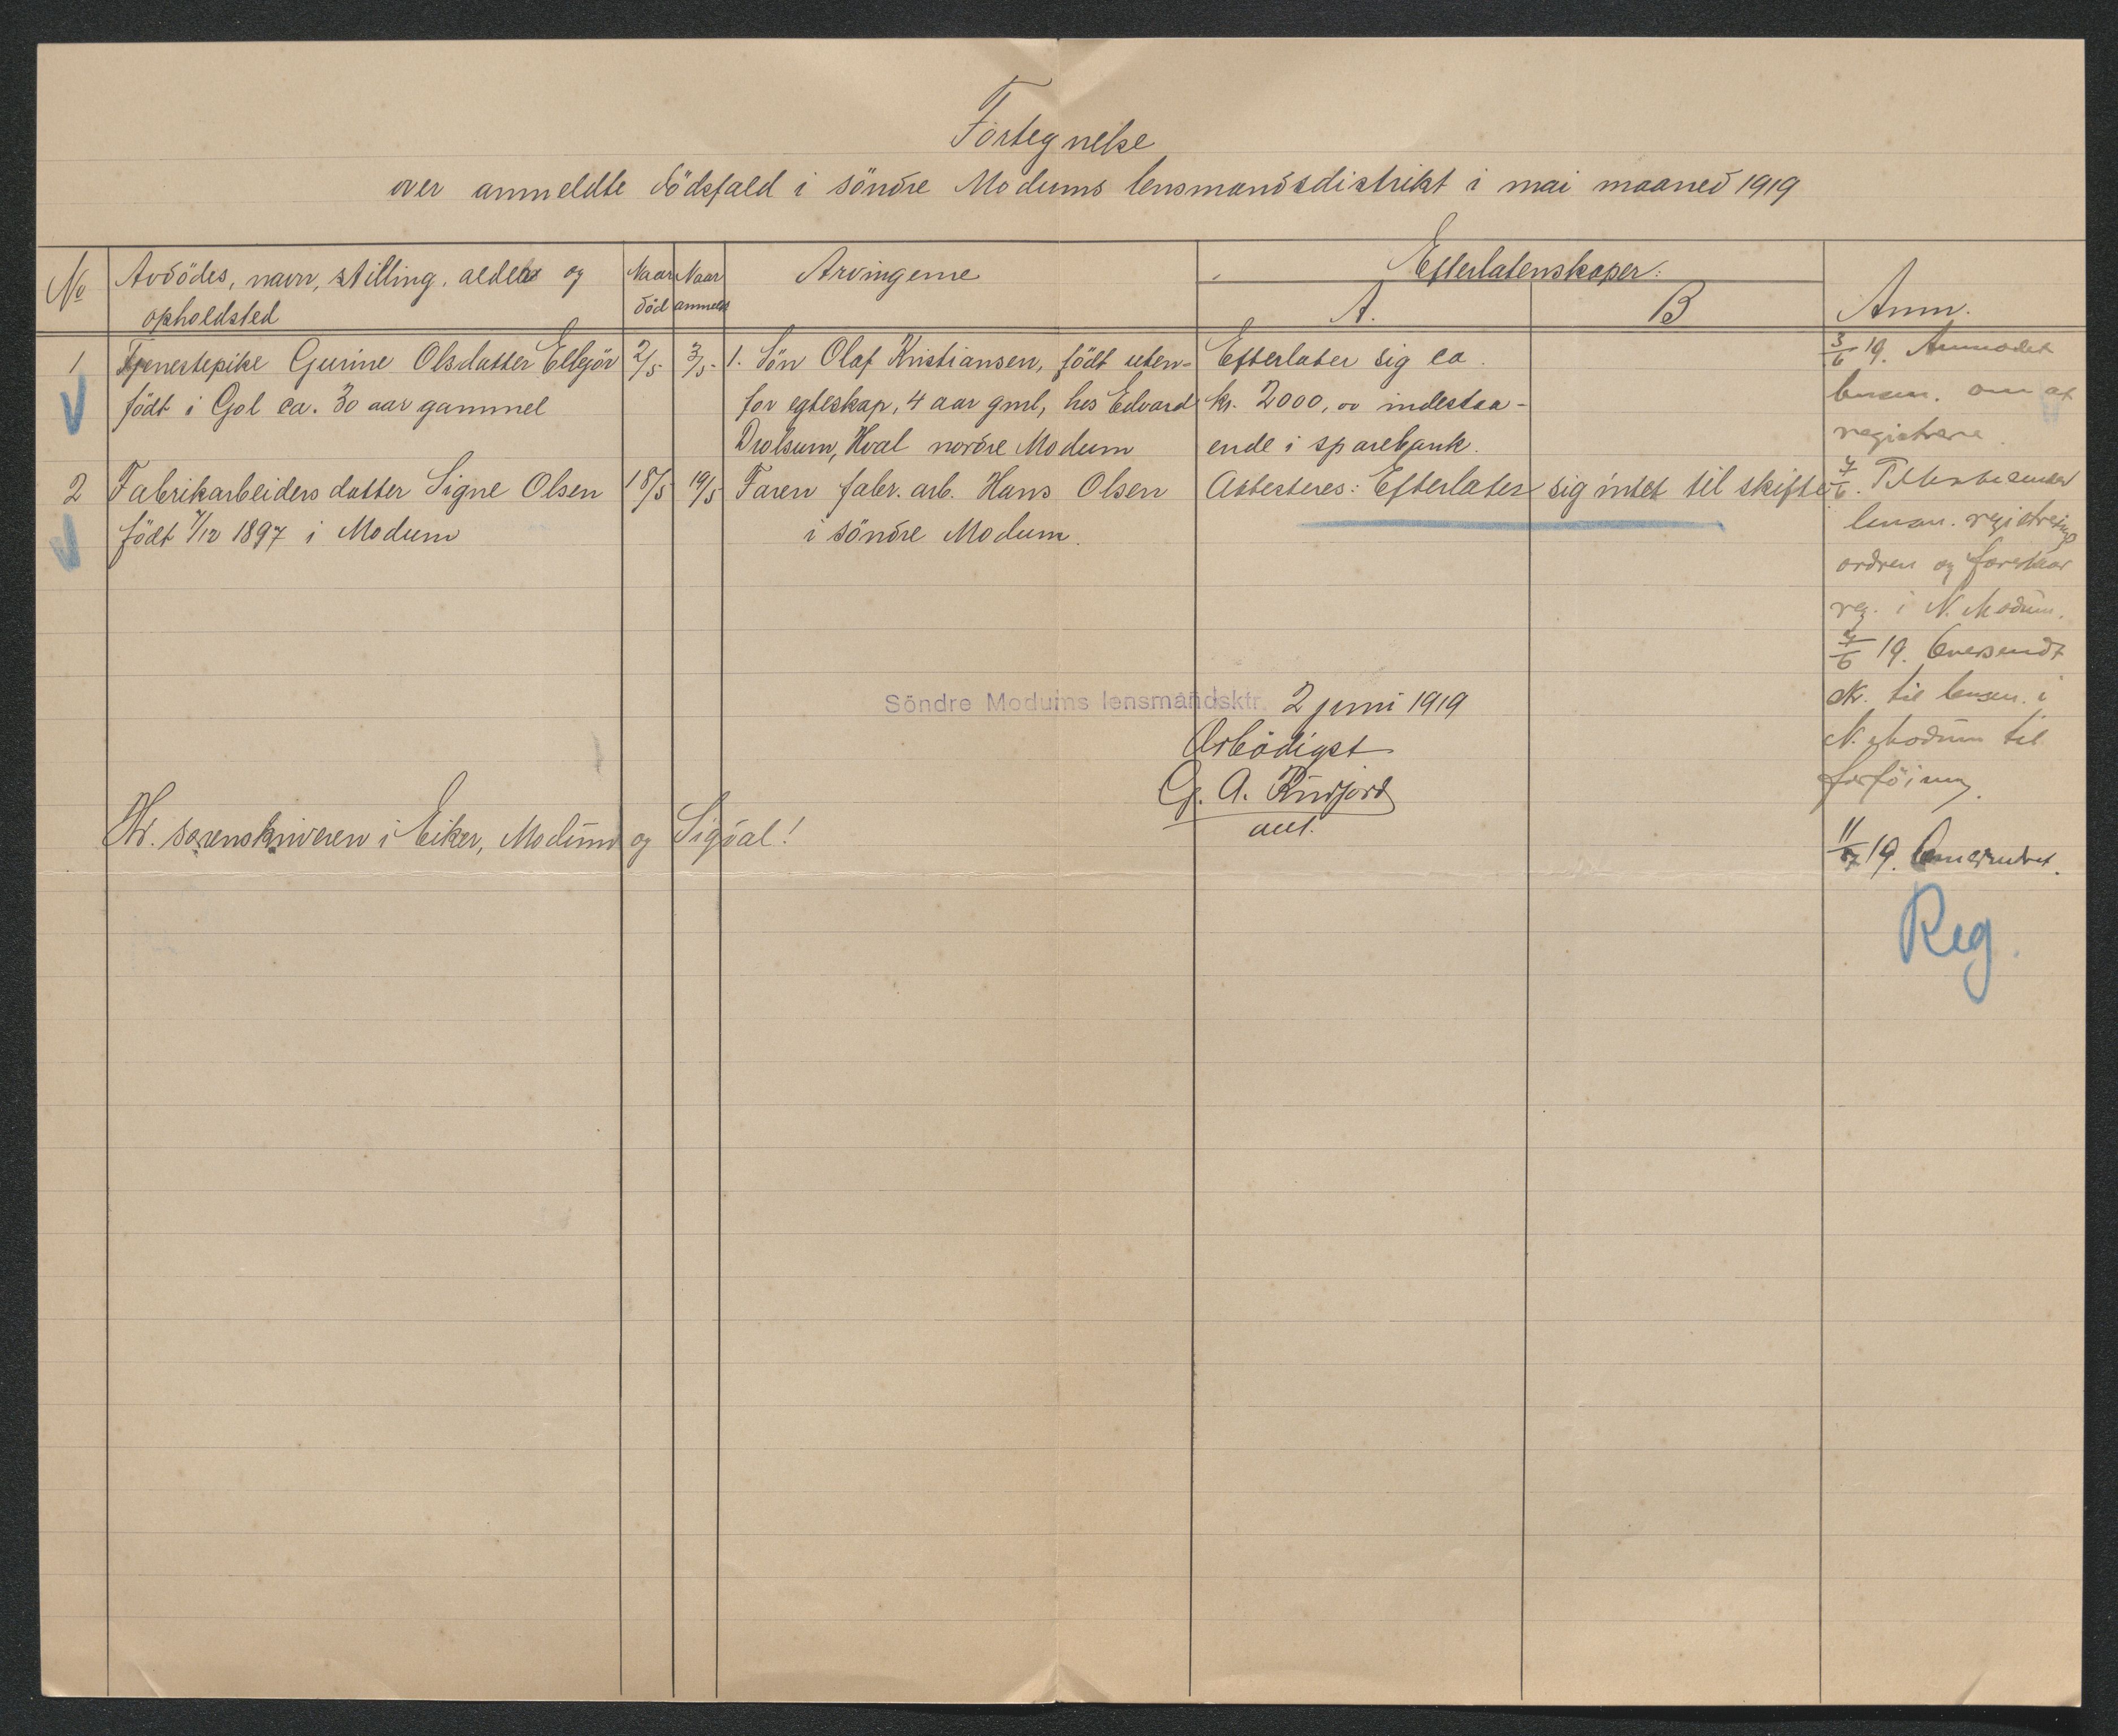 Fortegnelse
over anmeldte dödsfald i söndre Modums lensmandsdistrikt i mai maaned 1919
No
Avdödes, navn, stilling, alder og
opholdsted
Naar död
Naar anmeldt
Arvingerne
Efterlatenskaper:
A.
B
Anm.
1
Tjenestepike Gurine Olsdatter
födt i Gol ca. 30 aar gammel
2/5
3/5
1. Sön Olaf Kristiansen, födt uten-
for egteskap, 4 aar gml, hos Edvard
Drolsum, Hval nordre Modum
Efterlater sig ca.
kr. 2000,00 indestaa-
ende i sparebank.
3/6 19. Anmodet
lensm. om at
registrere.
2
Fabrikarbeiders datter Signe Olsen
födt 7/12 1897 i Modum
18/5
19/5
Faren fabr. arb. Hans Olsen
i söndre Modum.
Attesteres: Efterlater sig intet til skifte.
7/6.
lensm. registrerings
ordren og
reg. i N. Modum.
7/6 19. Oversendt
sk. til lensm. i
N. Modum til
forföining.
Söndre Modums lensmandsktr. 2 juni 1919
Ærbödigst
G. A. Rudfjord
aut.
Hr. sorenskriveren i Eiker, Modum og Sigdal!
11/7 19.
Reg.